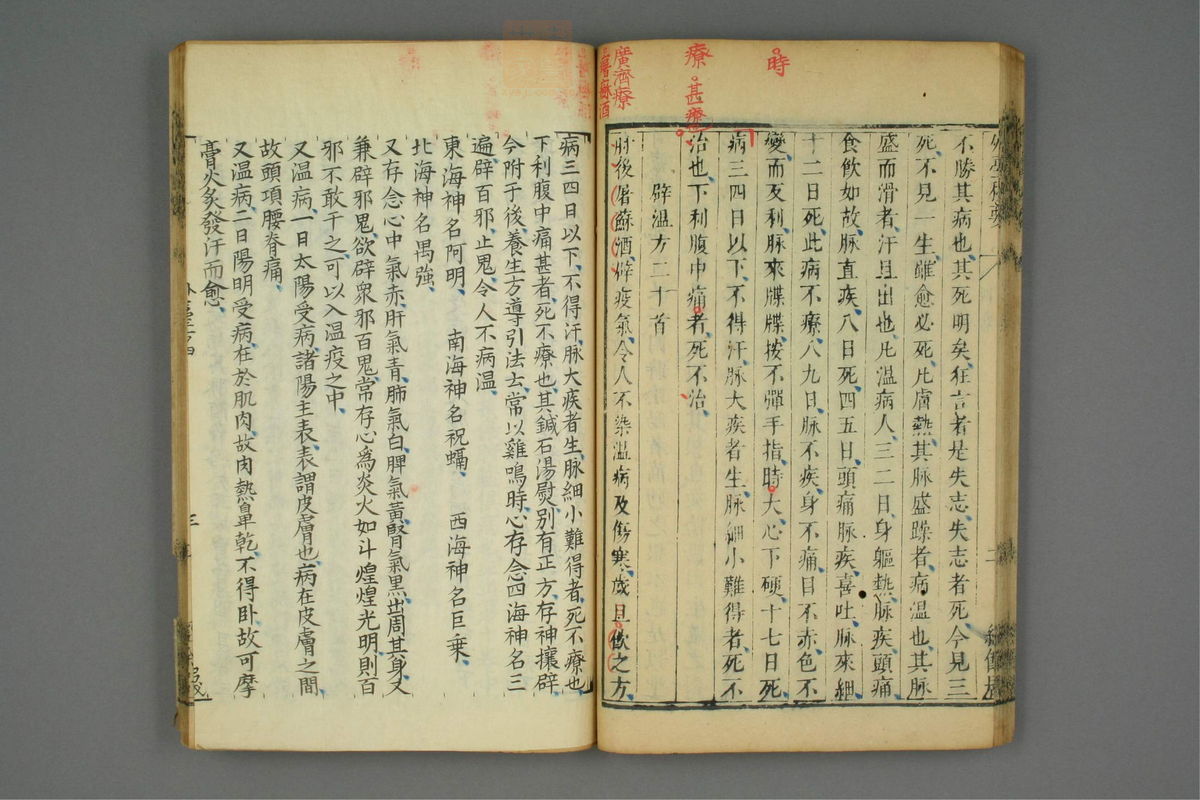 時
療 甚療
廣濟療
屠蘇酒
不勝其病也其死明矣狂言者是失志失志者死今見三
死不見一生雖愈必死凡膚熱其脉盛躁者病溫也其脉
盛而滑者汗且出也凡溫病人三二日身軀熱脉疾頭痛
食飲如故脉直疾八日死四五日頭痛脉疾喜吐脉來細
十二日死此病不療八九日脉不疾身不痛目不赤色不
變而反利脉來牒牒按不彈手指時大心下硬十七日死
病三四日以下不得汗脉大疾者生脉細小難得者死不
治也下利腹中痛者死不治
辟溫方二十首
肘後屠蘇酒辟疫氣令人不染溫病及傷寒歲旦飲之方
病三四日以下不得汗脉大疾者生脉細小難得者死不療也
下利腹中痛甚者死不療也其鍼石湯熨別有正方存神攘辟
今附于後養生方導引法云常以雞鳴時心存念四海神名三
遍辟百邪止鬼令人不病溫
東海神名阿明 南海神名祝螎 西海神名巨乗
北海神名禺強
又存念心中氣赤肝氣青肺氣白脾氣黃腎氣黑出周其身又
兼辟邪鬼欲辟衆邪百鬼常存心為炎火如斗煌煌光明則百
邪不敢干之可以入溫疫之中
又溫病一日太陽受病諸陽主表表謂皮膚也病在皮膚之間
故頭項腰脊痛
又溫病二日陽明受病在於肌肉故肉熱鼻乾不得卧故可摩
膏火灸發汗而愈
三